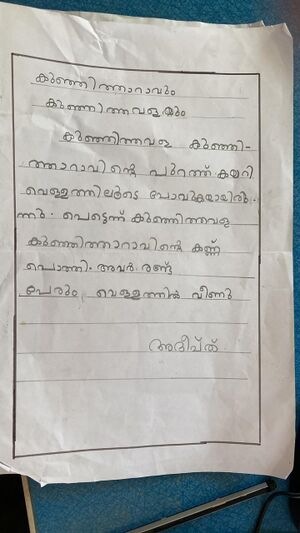 കുഞ്ഞിത്താറാവും
കുഞ്ഞിത്തവളയും
കുഞ്ഞിത്തവള കുഞ്ഞി-
ത്താറാവിൻ്റെ പുറത്ത് കയറി
വെള്ളത്തിലൂടെ പോവുകയായിരു-
ന്നു. പെട്ടെന്ന് കുഞ്ഞിത്തവള
കുഞ്ഞിത്താറാവിൻ്റെ കണ്ണ്
പൊത്തി. അവർ രണ്ടു
പേരും വെള്ളത്തിൽ വീണു
അദീപ്ത്